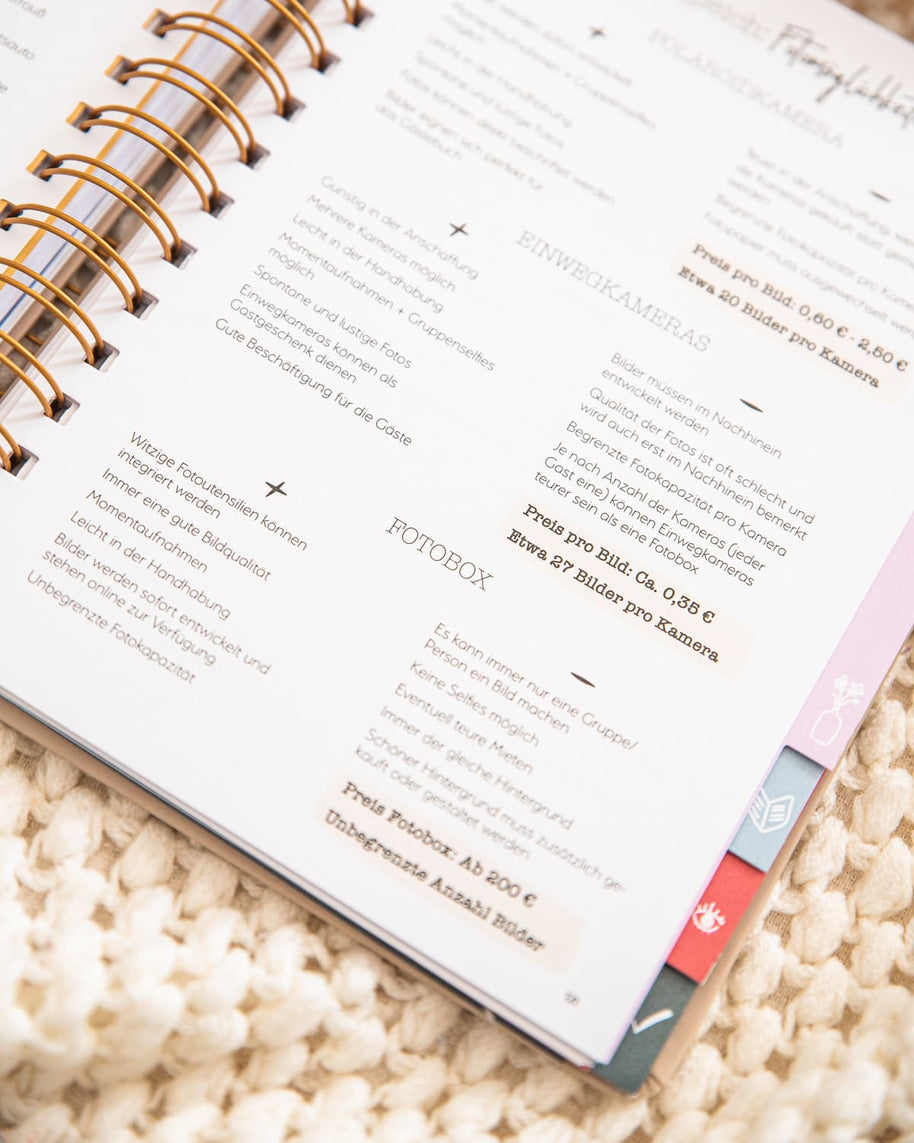 POLAROIDKAMERA
Momentaufnahmen + Gruppenselfies
möglich
Leicht in der Handhabung
Spontane und lustige Fotos
Fotos können direkt beschriftet werden
Bilder eignen sich perfekt für
das Gästebuch
Teuer in der Anschaffung
die Kameras gekauft statt
werden
Begrenzte Fotokapazität pro
Fotopapier muss ausgewechselt
Preis pro Bild: 0,60 € - 2,50 €
Etwa 20 Bilder pro Kamera
EINWEGKAMERAS
Günstig in der Anschaffung
Mehrere Kameras möglich
Leicht in der Handhabung
Momentaufnahmen + Gruppenselfies
möglich
Spontane und lustige Fotos
Einwegkameras können als
Gastgeschenk dienen
Gute Beschäftigung für die Gäste
Bilder müssen im Nachhinein
entwickelt werden
Qualität der Fotos ist oft schlecht und
wird auch erst im Nachhinein bemerkt
Begrenzte Fotokapazität pro Kamera
Je nach Anzahl der Kameras (jeder
Gast eine) können Einwegkameras
teurer sein als eine Fotobox
Preis pro Bild: Ca. 0,35 €
Etwa 27 Bilder pro Kamera
FOTOBOX
Witzige Fotoutensilien können
integriert werden
Immer eine gute Bildqualität
Momentaufnahmen
Leicht in der Handhabung
Bilder werden sofort entwickelt und
stehen online zur Verfügung
Unbegrenzte Fotokapazität
Es kann immer nur eine Gruppe/
Person ein Bild machen
Keine Selfies möglich
Eventuell teure Mieten
Immer der gleiche Hintergrund
Schöner Hintergrund muss zusätzlich ge-
kauft oder gestaltet werden
Preis Fotobox: Ab 200 €
Unbegrenzte Anzahl Bilder